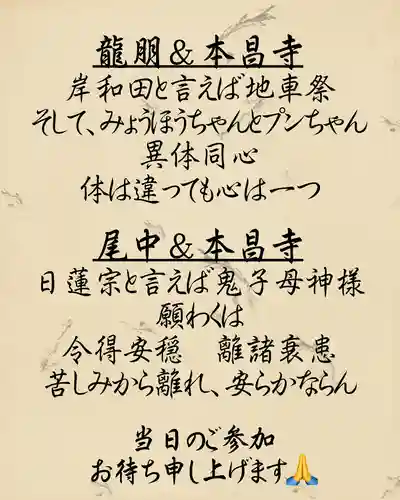 龍朋&本昌寺
岸和田と言えば地車祭
そして、みょうほうちゃんとプンちゃん
異体同心
体は違っても心は一つ
尾中&本昌寺
日蓮宗と言えば鬼子母神様
願わくは
令得安穏　離諸衰患
苦しみから離れ、安らかならん
当日のご参加
お待ち申し上げます🙏